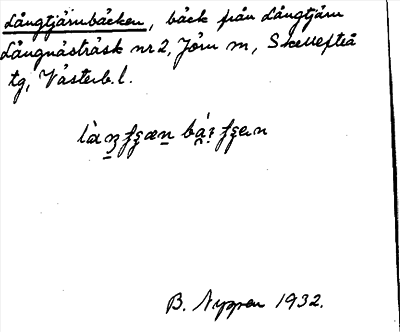 Långtjärnbäcken, bäck från Långtjärn
Långnästräsk nr 2, Jörn sn, Skellefteå
tg, Västerb. l.
B. Nyppen 1932.